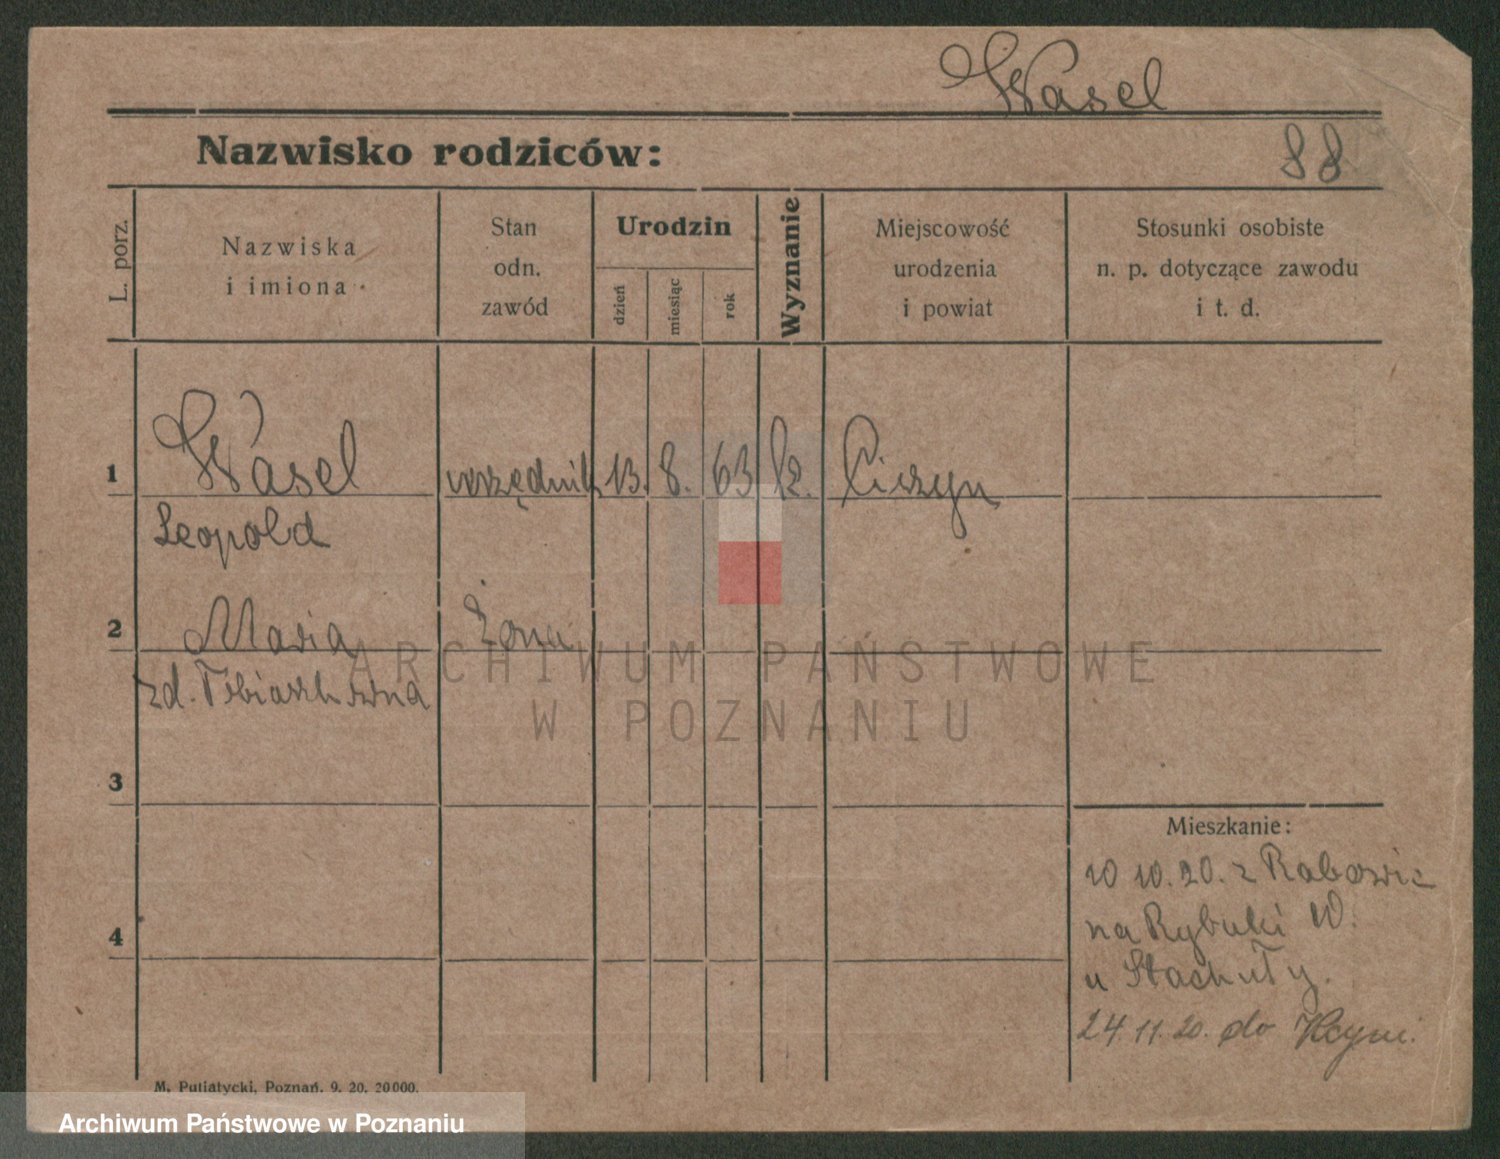 Wasel
Nazwisko rodziców:
88
L. porz.
Nazwiska
i imiona
Stan
odn.
zawód
Urodzin
dzień
miesiąc
rok
Wyznanie
Miejscowość
urodzenia
i powiat
Stosunki osobiste
n. p. dotyczące zawodu
i t. d.
1
Wasel urzędnik 13. 8. 63
Leopold
2
Maria Żona
zd.
3
4
Mieszkanie:
10 10. 20. z
na Rybaki 10.
u Stachuły.
24. 11. 20. do Kcyni.
M. Putiatycki, Poznań. 9. 20. 20000.
ARCHIWUM PAŃSTWOWE
W POZNANIU
Archiwum Państwowe w Poznaniu